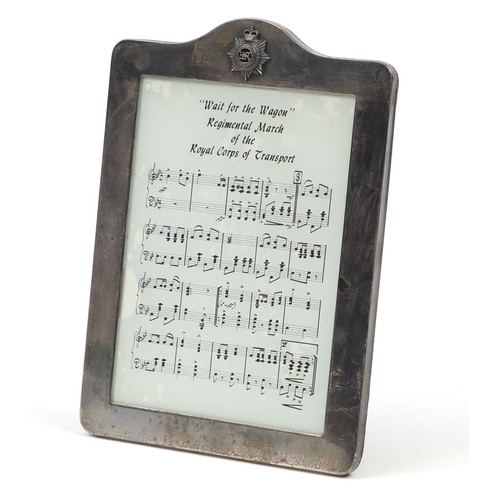 "Wait for the Wagon"
Regimental March
of the
Royal Corps of Transport